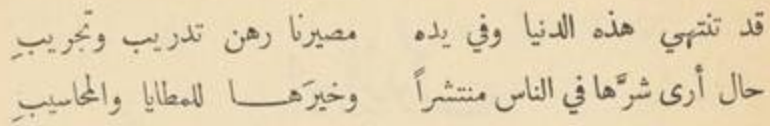 قد تنتهي هذه الدنيا وفي يده مصيرنا رهن تدريب وتجريبِ
حال أرى شرَّها في الناس منتشراً وخيرَهـا للمطايا والمحاسيبِ